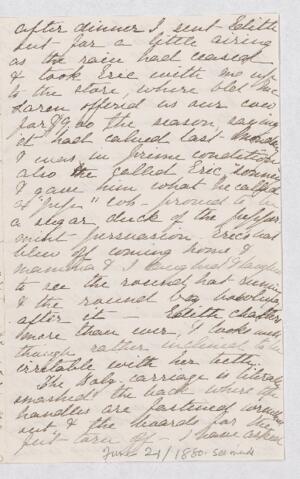 after dinner I sent Edith
out for a little airing
as the rain had ceased
& took Eric with me up
to the store, where old Mc
Laren offered us our cow
for the season, saying
it had calved last
& was in prime condition
also he called Eric,
& gave him what he called
a
a sugar duck of the pepper
mint persuasion, Eric's hat
blew off coming home &
mamma & I laughed
to see the round hat running
& the round boy
after it — Edith chatters
more than ever, & looks well
though rather inclined to be
irretable with her teeth.
The baby carriage is literally
smashed the back where the
handles are fastened wrenched
out & the boards for the
feet torn off — I have asked
June 24/1880